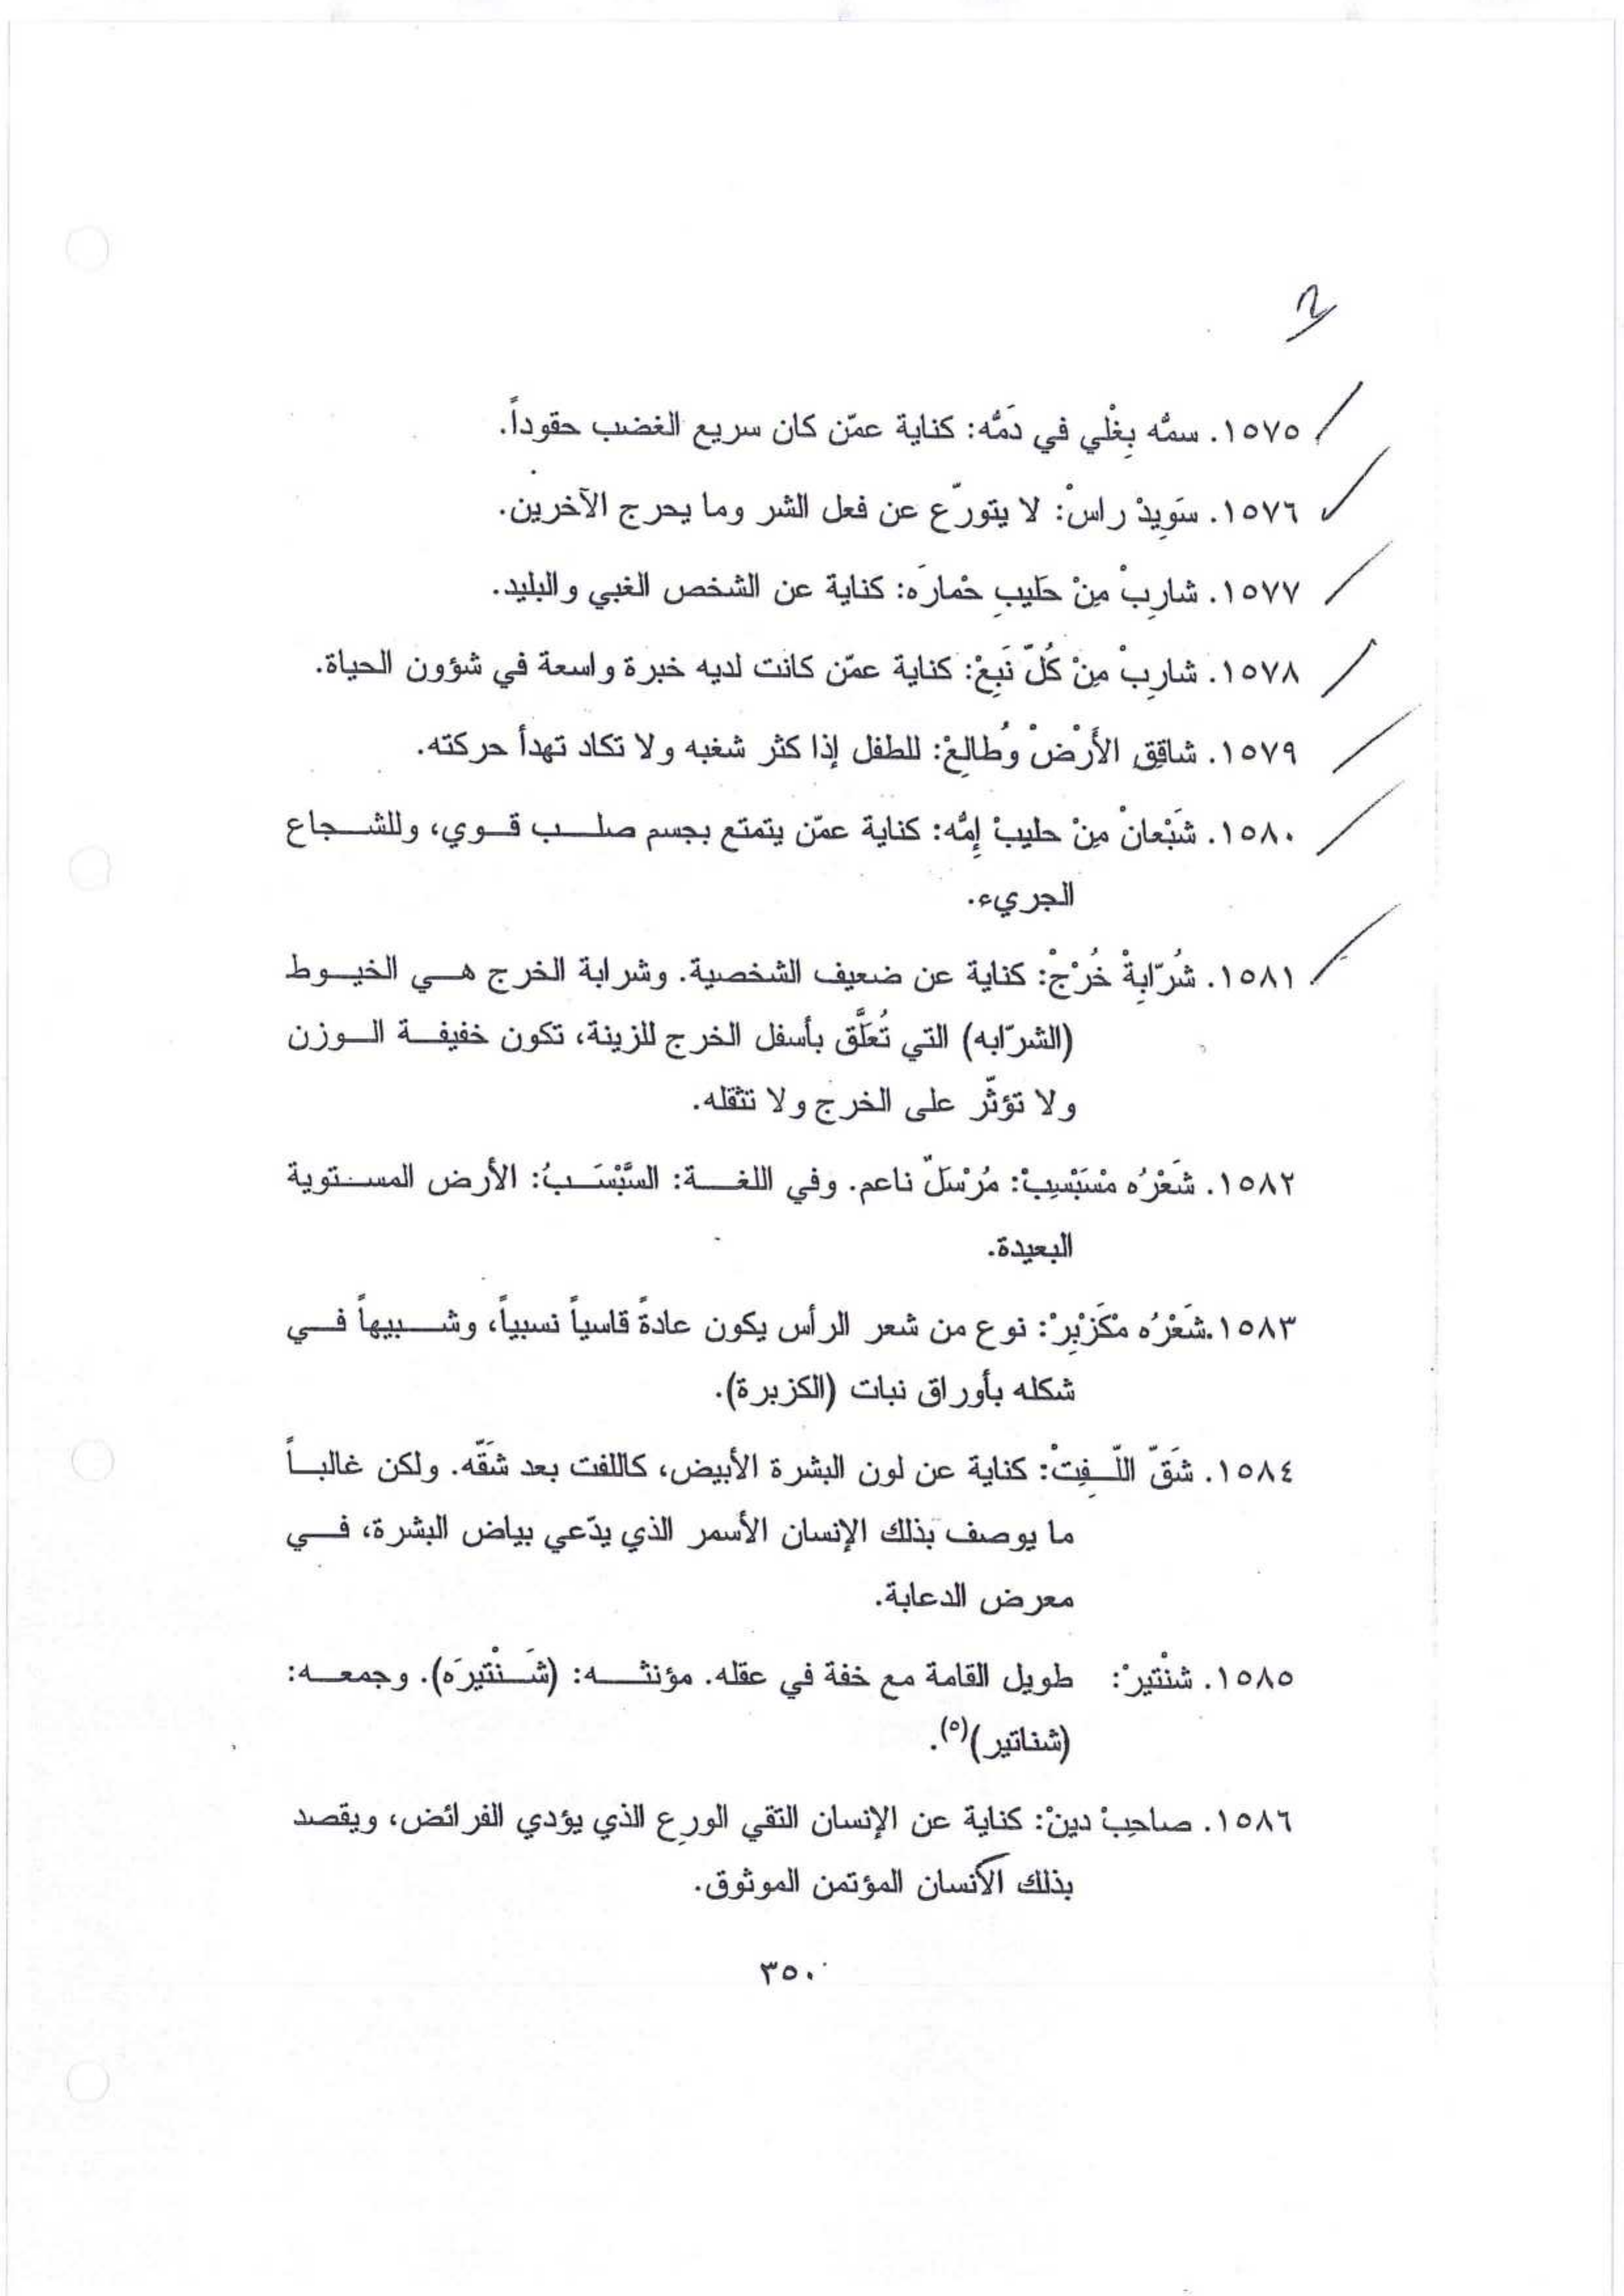 ١٥٧٥. سمُّه بِغْلي في دَمُّه: كناية عمّن كان سريع الغضب حقوداً.
١٥٧٦. سَوِيدْ راسْ: لا يتورّع عن فعل الشر وما يحرج الآخرين.
١٥٧٧. شارِبْ مِنْ حَليبِ حْمارَه: كناية عن الشخص الغبي والبليد.
١٥٧٨. شارِبْ مِنْ كُلّ نَبِعْ: كناية عمّن كانت لديه خبرة واسعة في شؤون الحياة.
١٥٧٩. شاقِقِ الأَرْضْ وُطالِعْ: للطفل إذا كثر شغبه ولا تكاد تهدأ حركته.
١٥٨٠. شَبْعانْ مِنْ حليبْ إِمُّه: كناية عمّن يتمتع بجسم صلب قوي، وللشجاع
الجريء.
١٥٨١. شُرّابِةْ خُرْجْ: كناية عن ضعيف الشخصية. وشرابة الخرج هي الخيوط
(الشرّابه) التي تُعلَّق بأسفل الخرج للزينة، تكون خفيفة الوزن
ولا تؤثّر على الخرج ولا تثقله.
١٥٨٢. شَعْرُه مْسَبْسِبْ: مُرْسَلٌ ناعم. وفي اللغة: السَّبْسَبُ: الأرض المستوية
البعيدة.
١٥٨٣.شَعْرُه مْكَزْبِرْ: نوع من شعر الرأس يكون عادةً قاسياً نسبياً، وشبيهاً في
شكله بأوراق نبات (الكزبرة).
١٥٨٤. شَقّ اللّفِتْ: كناية عن لون البشرة الأبيض، كاللفت بعد شَقّه. ولكن غالباً
ما يوصف بذلك الإنسان الأسمر الذي يدّعي بياض البشرة، في
معرض الدعابة.
١٥٨٥. شنْتيرْ: طويل القامة مع خفة في عقله. مؤنثه: (شَنْتيرَه). وجمعه:
(شناتير)(٥).
١٥٨٦. صاحِبْ دينْ: كناية عن الإنسان التقي الورِع الذي يؤدي الفرائض، ويقصد
بذلك الأنسان المؤتمن الموثوق.
٣٥٠